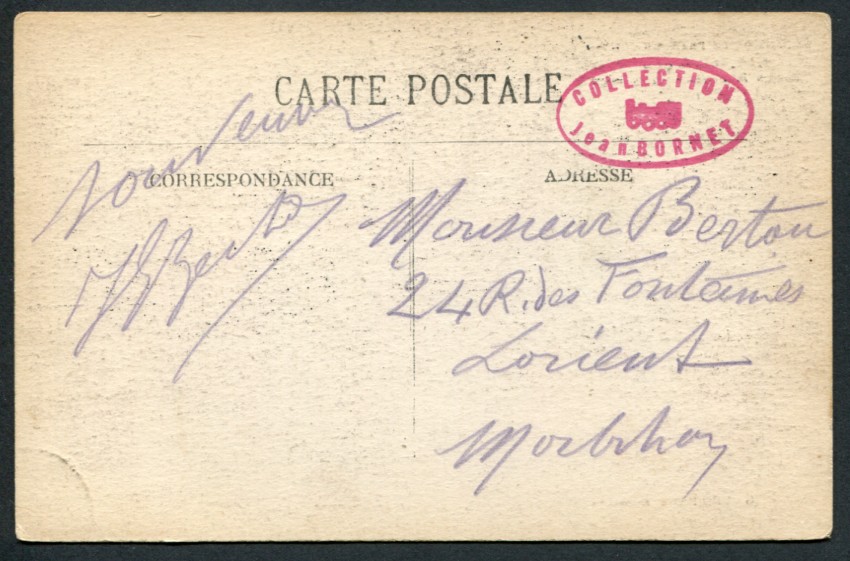 CARTE POSTALE
COLLECTION
Jean BORNET
CORRESPONDANCE
ADRESSE
Souvenir
Monsieur Berton
24 R. des Fontaines
Lorient
Morbihan